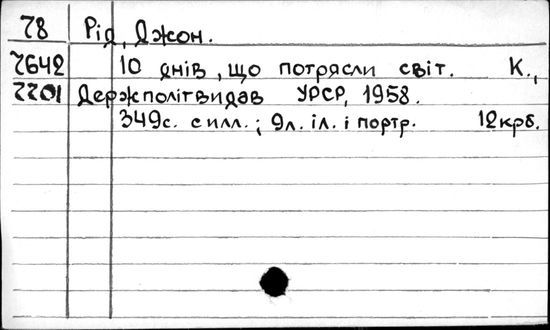 78 Рід, Джон.
7642 10 днів, що потрясли світ. К.,
7701 Держполітвидав УРСР, 1958.
349с. с илл.; 9л. іл. і портр. 12крб.